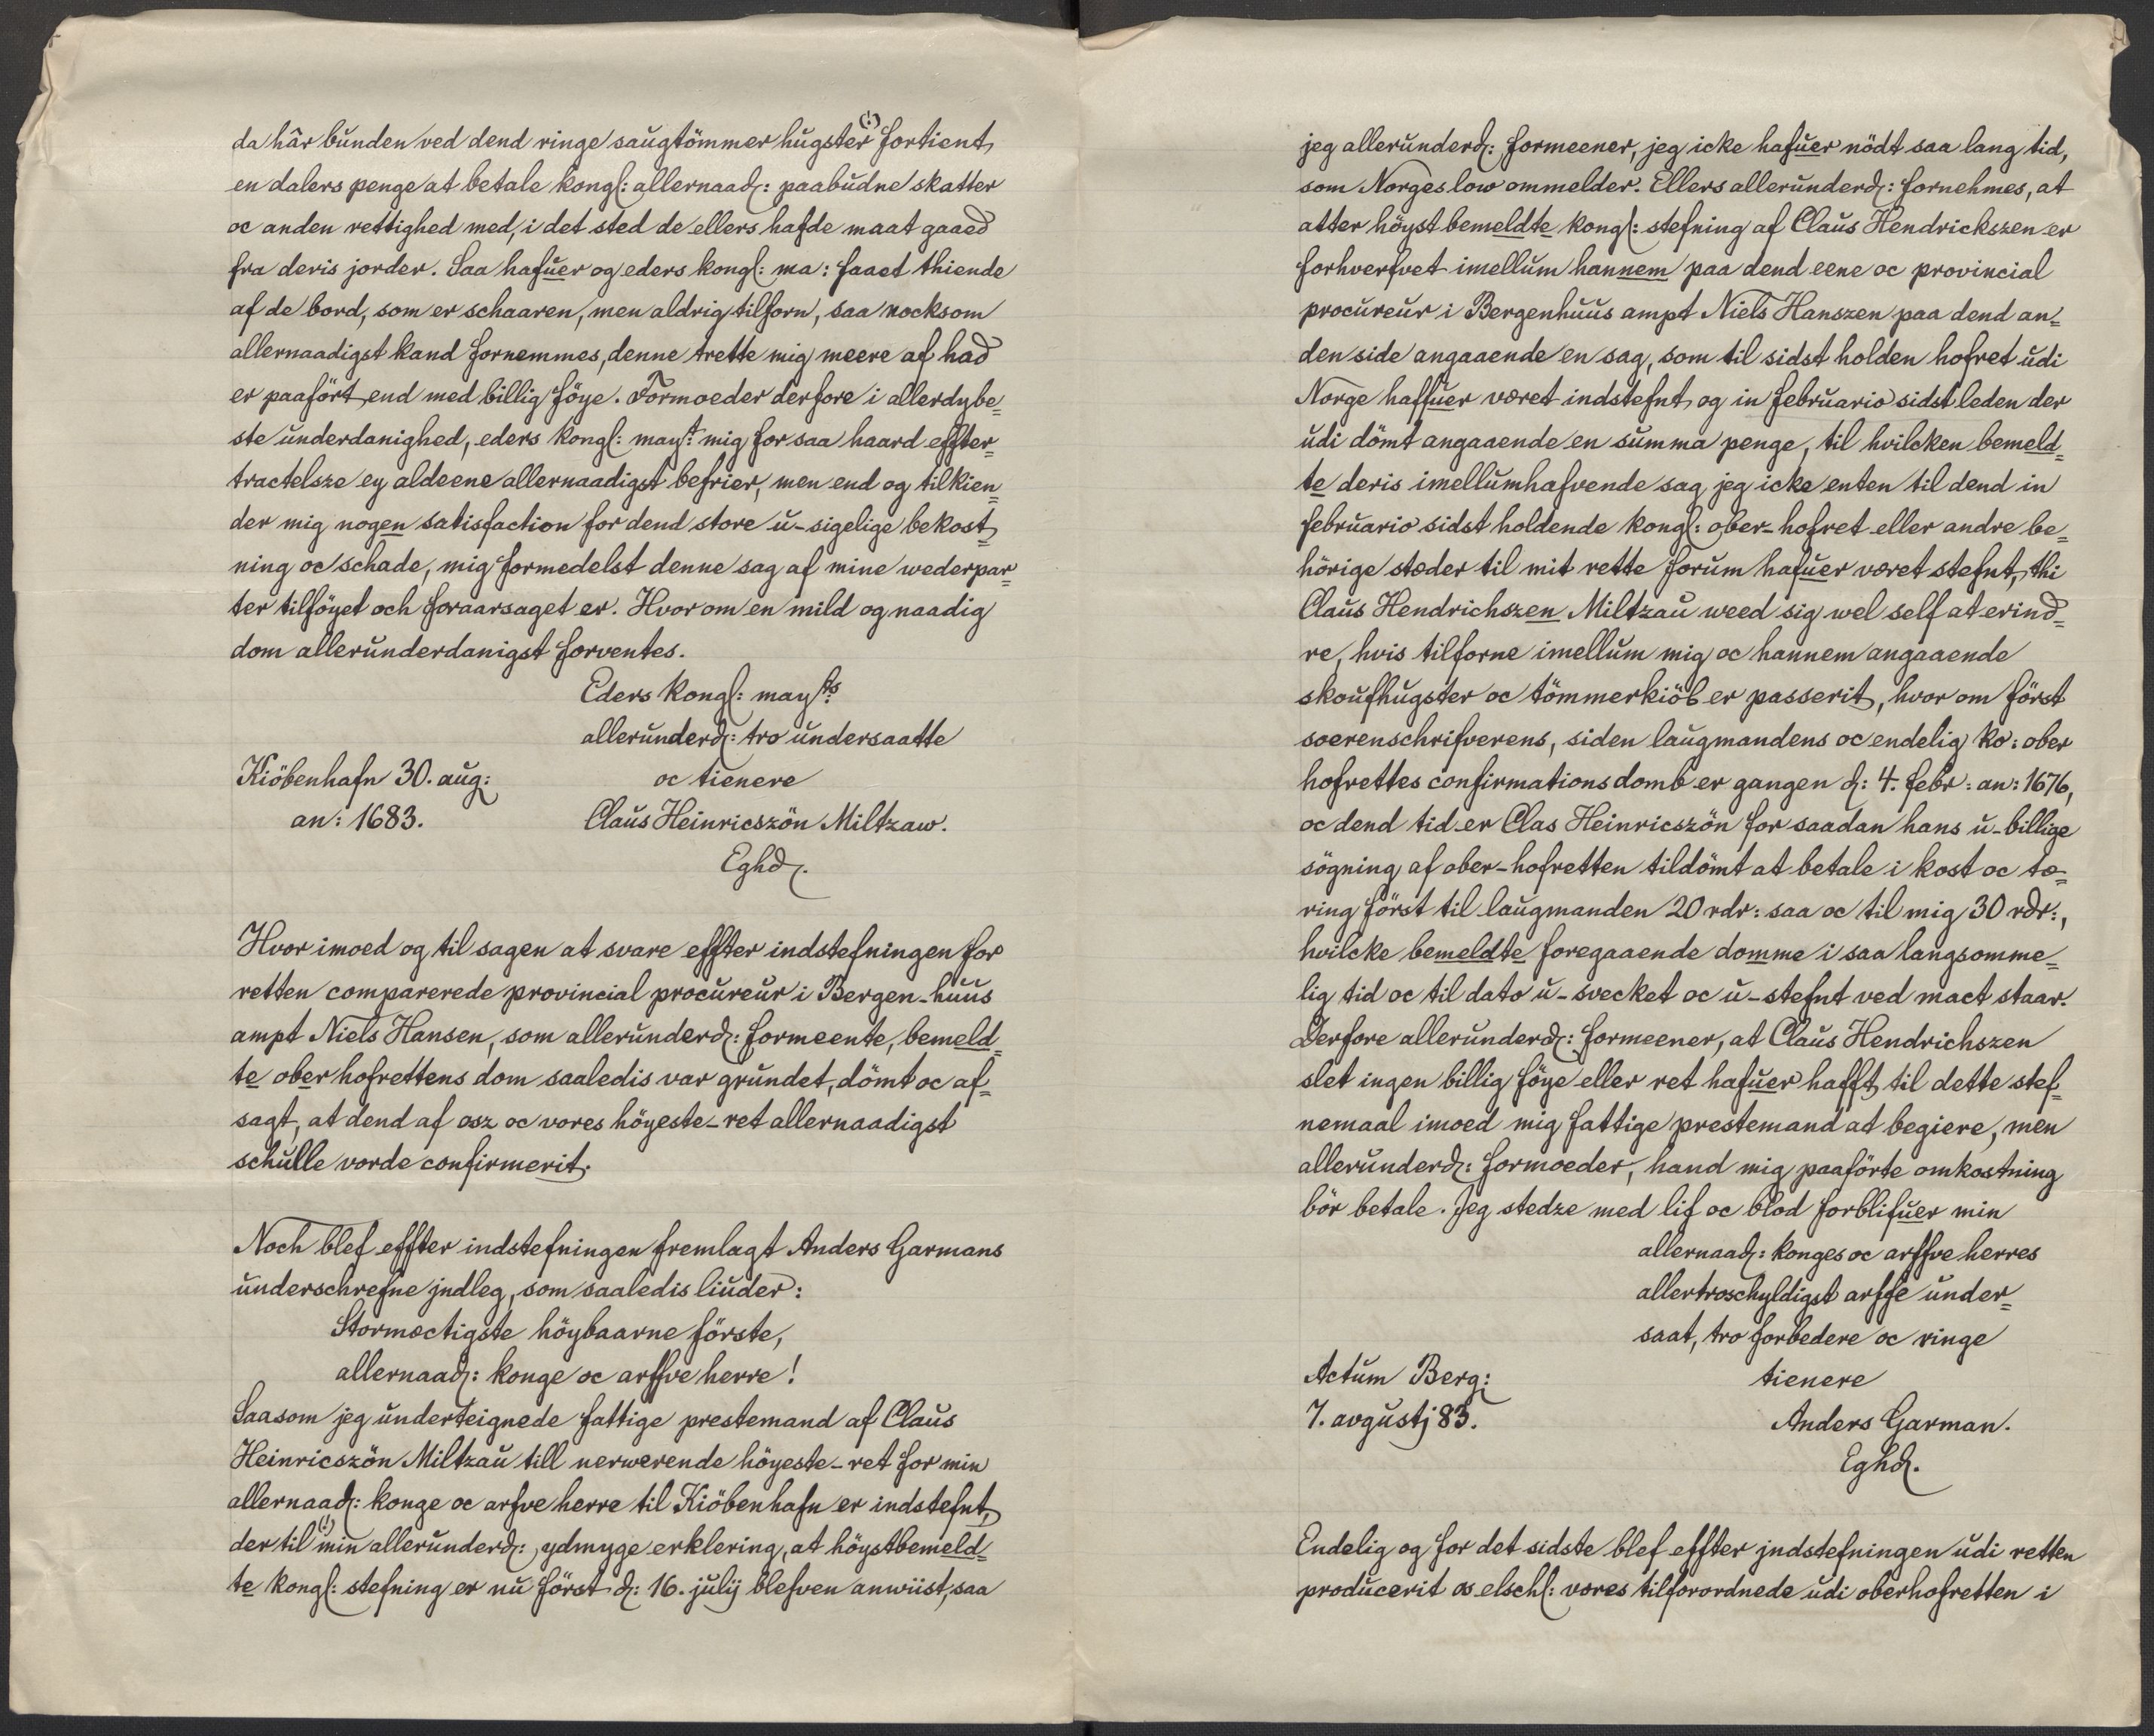 da hâr bunden ved dend ringe saugtömmer hugster (:) fortient
en dalers penge at betale kongl: allernaad: paabudne skatter
oc anden rettighed med, i det sted de ellers hafde maat gaaed
fra deris jorder. Saa hafuer og eders kongl: ma: faaet thiende
af de bord, som er schaaren, men aldrig tilforn, saa nocksom
allernaadigst kand fornemmes, denne trette mig meere af had
er paafört end med billig föye. Formoeder derfore i allerdybe=
ste underdanighed, eders kongl: mayt: mig for saa haard effter=
tractelsze ey aldeene allernaadigst befrier, men end og tilkien=
der mig nogen satisfaction for dend store u-sigelige bekost=
ning oc schade, mig formedelst denne sag af mine wederpar=
ter tilföyet och foraarsaget er. Hvorom en mild og naadig
dom allerunderdanigst forventes.
Eders kongl: mayts:
allerunderd: tro undersaatte
Kiöbenhafn 30. aug: oc tienere
an: 1683. Claus Heinricszön Miltzaw.
Eghd.
Hvor imoed og til sagen at svare effter indstefningen for
retten comparerede provincial procureur i Bergen-huus
ampt Niels Hansen, som allerunderd: formeente, bemeld=
te oberhofrettens dom saaledis var grundet, dömt oc af=
sagt, at dend af osz oc vores höyeste-ret allernaadigst
schulle vorde confirmerit.
Noch blef effter indstefningen fremlagt Anders Garmans
underschrefne jndleg, som saaledis liuder:
Stormectigste höybaarne förste,
allernaad: konge oc arffve herre!
Saasom jeg underteignede fattige prestemand af Claus
Heinricszön Miltzau till nerwerende höyeste-ret for min
allernaad: konge oc arfve herre til Kiöbenhafn er indstefnt,
der til (!) min allerunderd: ydmyge erklering, at höystbemeld=
te kongl: stefning er nu först d: 16. julij blefven anwiist, saa
jeg allerunderd: formeener, jeg icke hafuer nödt saa lang tid,
som Norges low ommelder. Ellers allerunderd: fornehmes, at
atter höyst bemeldte kongl: stefning af Claus Hendrickszen er
forhverfvet imellum hannem paa dend eene oc provincial
procureur i Bergenhuus ampt Niels Hanszen paa dend an=
den side angaaende en sag, som til sidst holden hofret udi
Norge haffuer været indstefnt og in februario sidst leden der
udi dömt angaaende en summa penge, til hvilcken bemeld=
te deris imellumhafvende sag jeg icke enten til dend in
februario sidst holdende kongl: ober-hofret eller andre be=
hörige stæder til mit rette forum hafuer været stefnt, thi
Claus Hendrichszen Miltzau weed sig wel self at erind=
re, hvis tilforne imellum mig oc hannem angaaende
skoufhugster oc tömmerkiöb er passerit, hvor om först
soerenschrifverens, siden laugmandens oc endelig ko: ober
hofrettes confirmations domb er gangen d: 4. febr: an: 1676,
oc dend tid er Clas Heinricszön for saadan hans u-billige
sögning af ober-hofretten tildömt at betale i kost oc tæ=
ring först til laugmanden 20 rdr: saa oc til mig 30 rdr:,
hvilcke bemeldte foregaaende domme i saa langsomme=
lig tid oc til dato u-svecket oc u-stefnt ved mact staar.
Derfore allerunderd: formeener, at Claus Hendrichszen
slet ingen billig föye eller ret hafuer hafft til dette stef=
nemaal imoed mig fattige prestemand at begiere, men
allerunderd: formoeder, hand mig paaförte omkostning
bör betale. Jeg stedze med lif oc blod forblifuer min
allernaad: konges oc arffve herres
allertroschyldigst arffe under=
saat, tro forbedere oc ringe
Actum Berg: tienere
7. avgustj 83. Anders Garman.
Eghd.
Endelig og for det sidste blef effter jndstefningen udi retten
producerit os elschl: vores tilforordnede udi oberhofretten i